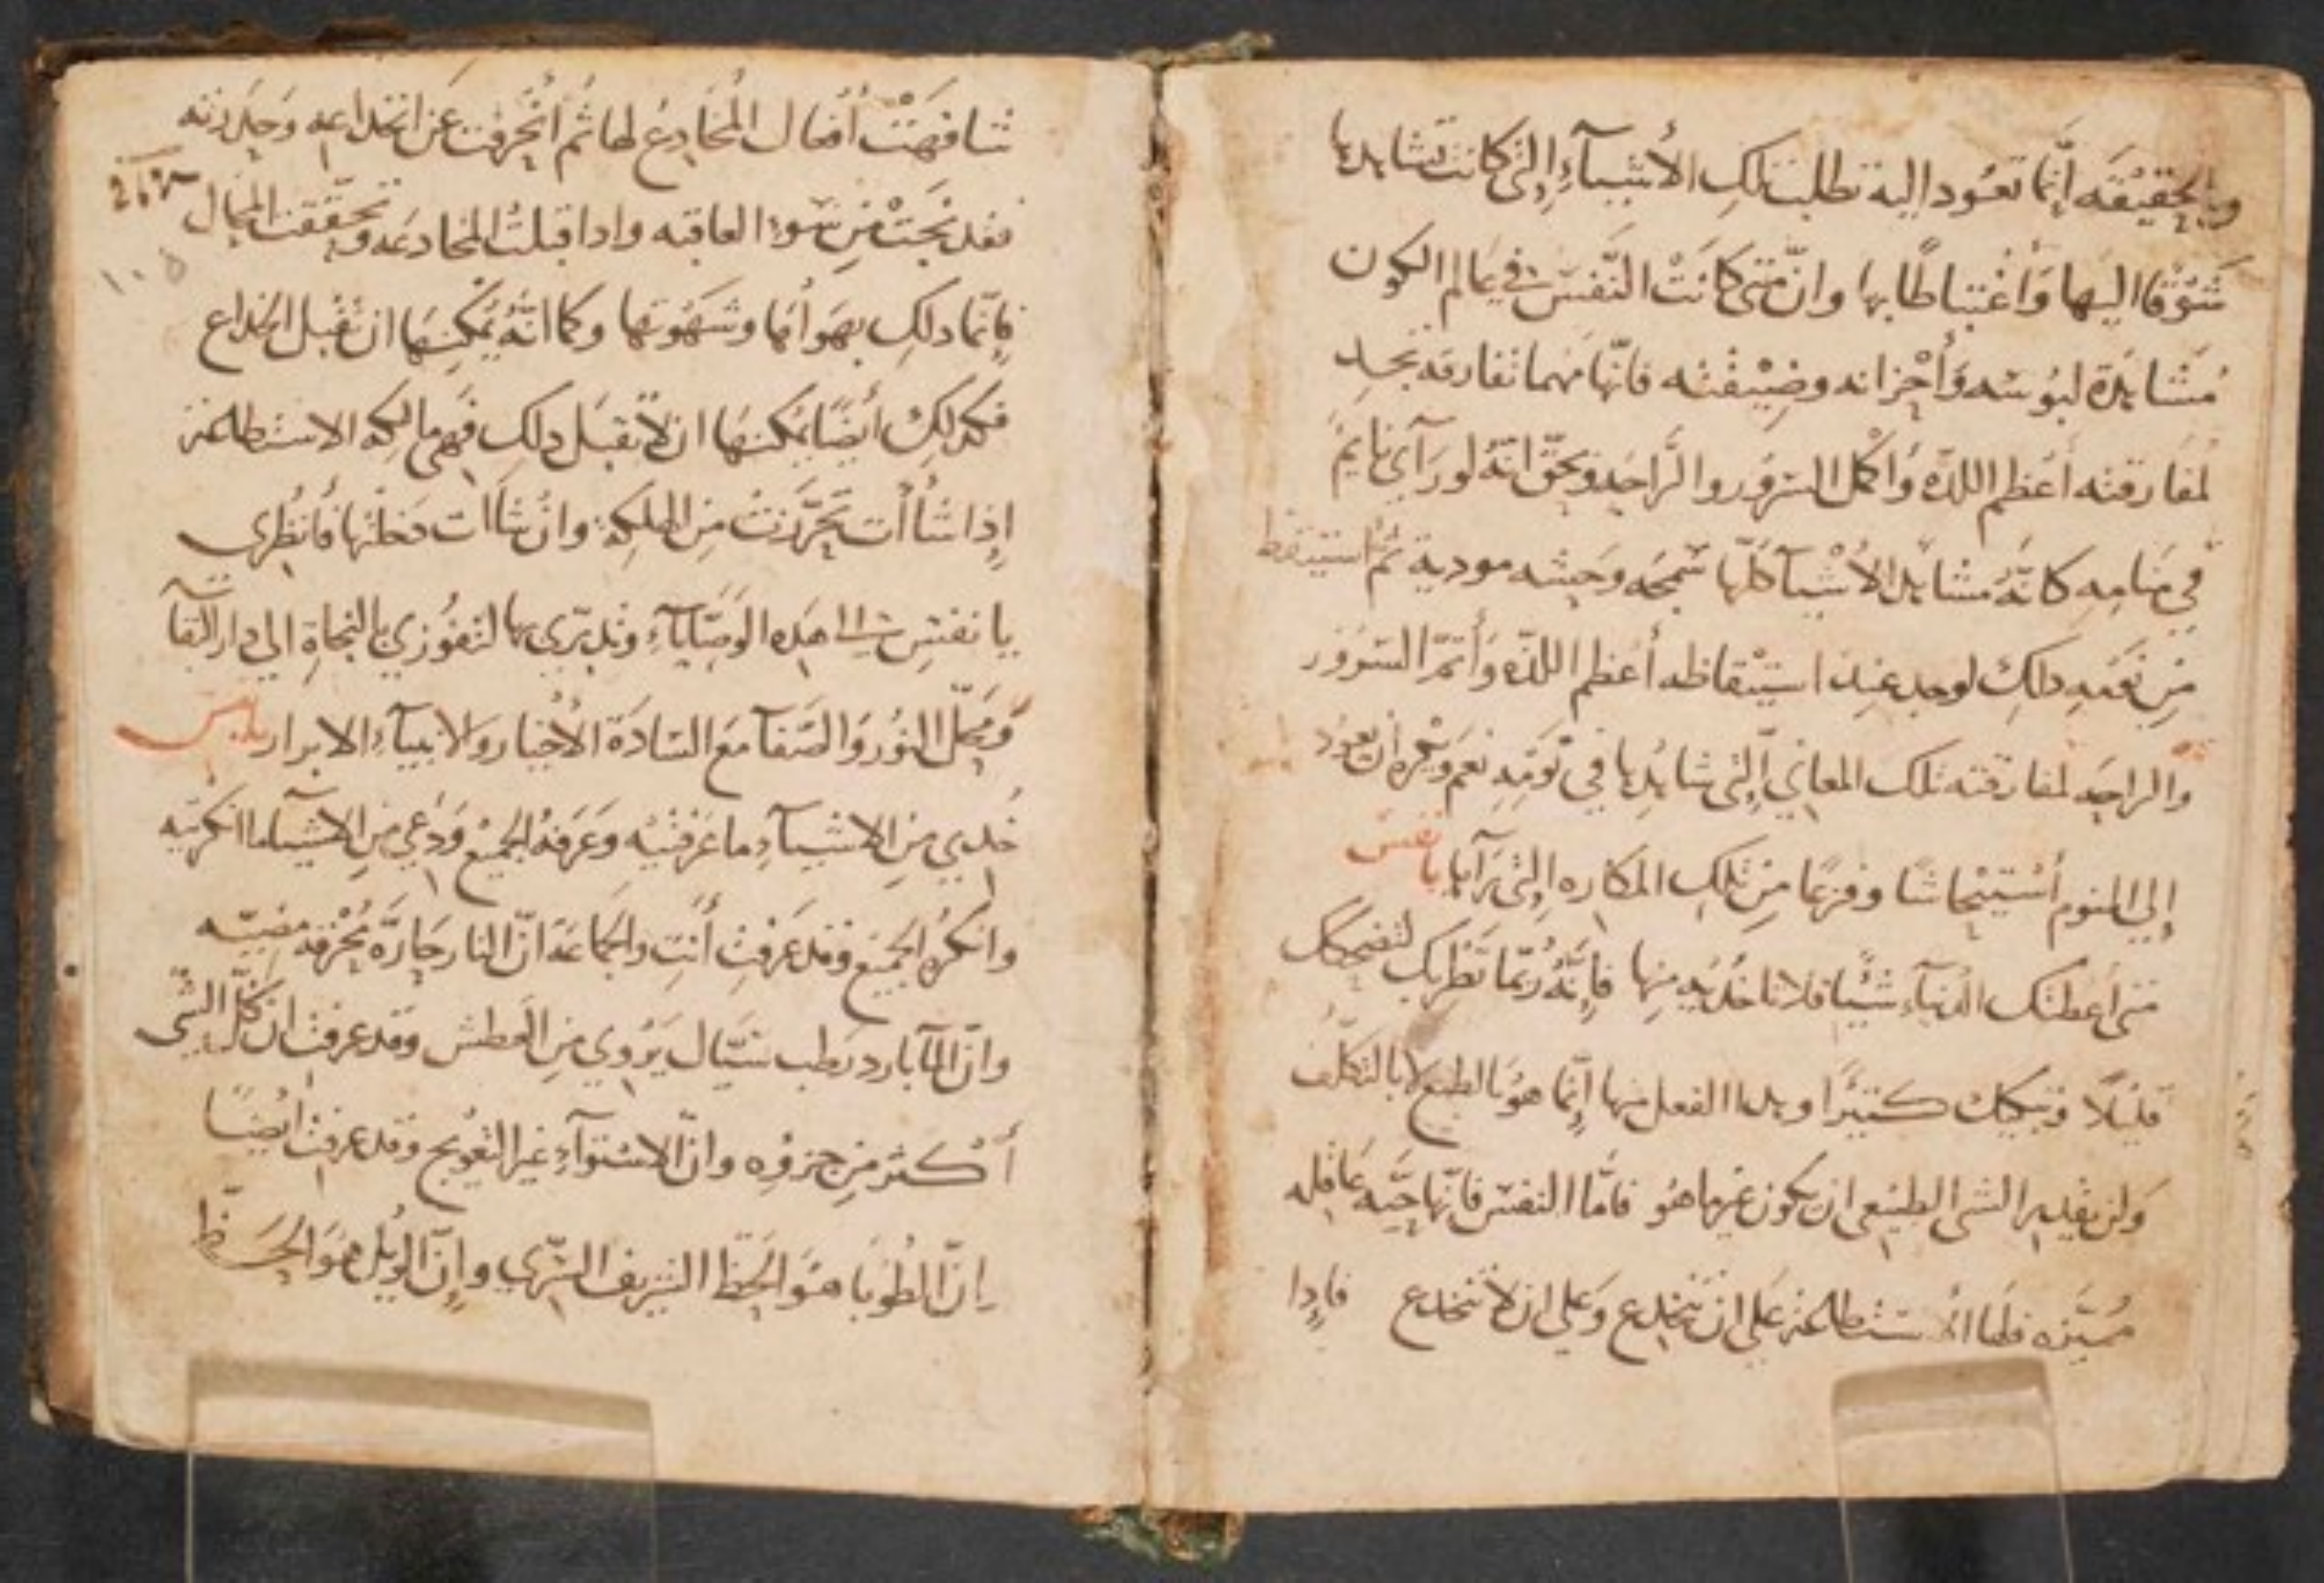 وبالحقيقة أنما تعود اليه تطلب تلك الأشيآء التي كانت تشاهدها
شوقا اليها وأغتباطا بها وان متى كانت النفس في عالم الكون
مشاهدة لبوسه وأحزانه وضيقته فانها مهما تفارقه تجد
لمفارقته أعظم اللده وأكمل السرور والراحه وبحق انه لو رآي نايم
في منامه كانه مشاهد الأشيآ كلها سمجه وحشه موديه ثم استيقظ
من نومه دلك لوجد عند استيقاظه أعظم اللده وأتم السرور
والراحه لمفارقته تلك المعاني التي شاهدها في نومه نعم ويكره أن يعود
إلي النوم أستيحاشا وفزعا من تلك المكاره التي رآها يا نفس
متى أعطتك الدنيآ شيئا فلا تاخديه منها فإنه ربما تطربك لتضحكك
قليلا وتبكيك كثيرا وهدا الفعل منها إنما هو بالطبع لا بالتكلف
ولن يقدر الشى الطبيعي ان يكون غير ما هو فاما النفس فانها حيه عاقله
مميزه فلها الاستطاعة على ان تنخدع وعلى ان لا تنخدع فإدا
شافهت أفعال المخادع لها ثم انحرفت عن انخداعه وحدرته
فقد نجت من سوء العاقبه وادا قبلت المخادعه وتحققت المحال
١٠٥
فإنما دلك بهوأها وشهوتها وكما انه يمكنها ان تقبل الخداع
فكدلك أيضا يمكنها ان لا تقبل دلك فهي مالكه الاستطاعة
إدا شاأت تحرزت من الهلكه وان شاأت دخلتها فانظري
يا نفس الى هده الوصايآ وتدبري بها لتفوزي بالنجاة الي دار البقآ
ومحل النور والصفآ مع السادة الأخيار والانبيآء الابرار يا نفس
خدي من الاشيآء ما عرفتيه وعرفه الجميع ودعي من الاشيآ ما انكرتيه
وانكره الجميع وقد عرفت أنت والجماعة ان النار حارة محرقه مضيه
وان المآ بارد رطب سيال يروي من العطش وقد عرفت ان كل الشي
أكثر من جزوه وان الاستوآء غير التعويج وقد عرفت ايضا
ان الطوبا هو الحظ الشريف السري وإن الويل هو الحظ